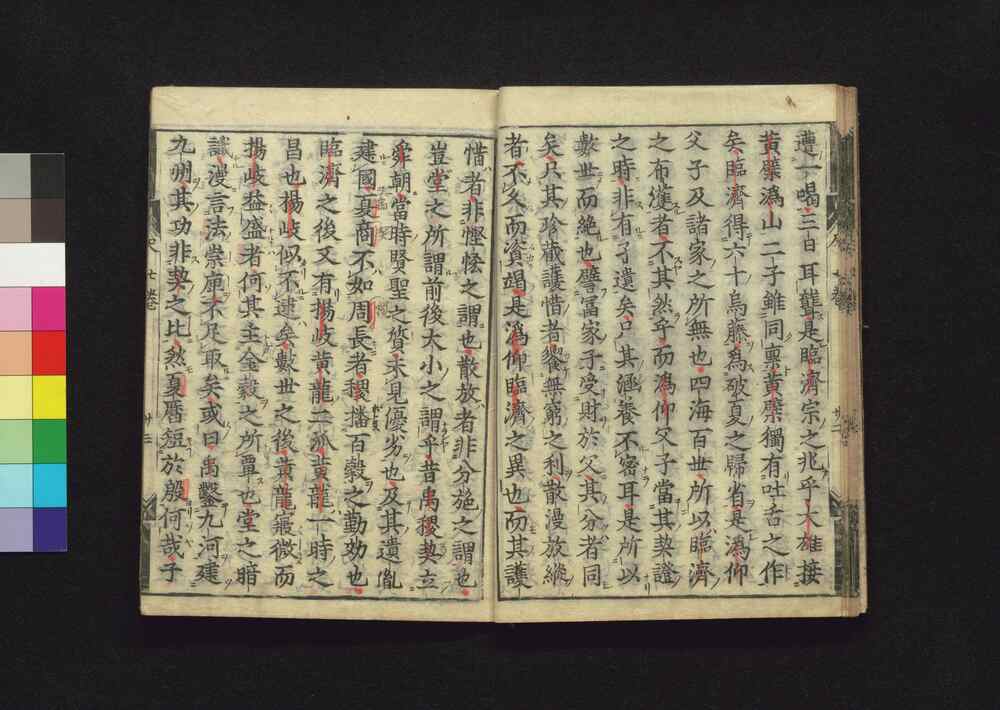 遭一喝三日耳聾是臨濟宗之兆乎大雄接
黃檗溈山二子雖同稟黃檗獨有吐舌之作
矣臨濟得六十烏藤為破夏之歸省是溈仰
父子及諸家之所無也四海百世所以臨濟
之布護者不其然乎而溈仰父子當其契證
之時非有孑遺矣只其涵養不密耳是所以
數世而絶也譬冨家子受財於父其分者同
矣只其珍藏護惜者饗無窮之利散漫放縱
者不久而資竭是溈仰臨濟之異也而其護
惜者非慳悋之謂也散放者非分施之謂也
豈堂之所謂前後大小之謂乎昔禹稷契立
舜朝當時賢聖之質未見優劣也及其遺胤
建國夏商不如周長者稷播百穀之勤効也
臨濟之後又有揚岐黃龍二派黃龍一時之
昌也揚岐似不逮矣數世之後黃龍癈微而
揚岐益盛者何其主金穀之所覃也堂之暗
識漫言法崇庳不足取矣或曰禹鑿九河建
九州其功非契之比然夏曆短於殷何哉子
七卷
廿三